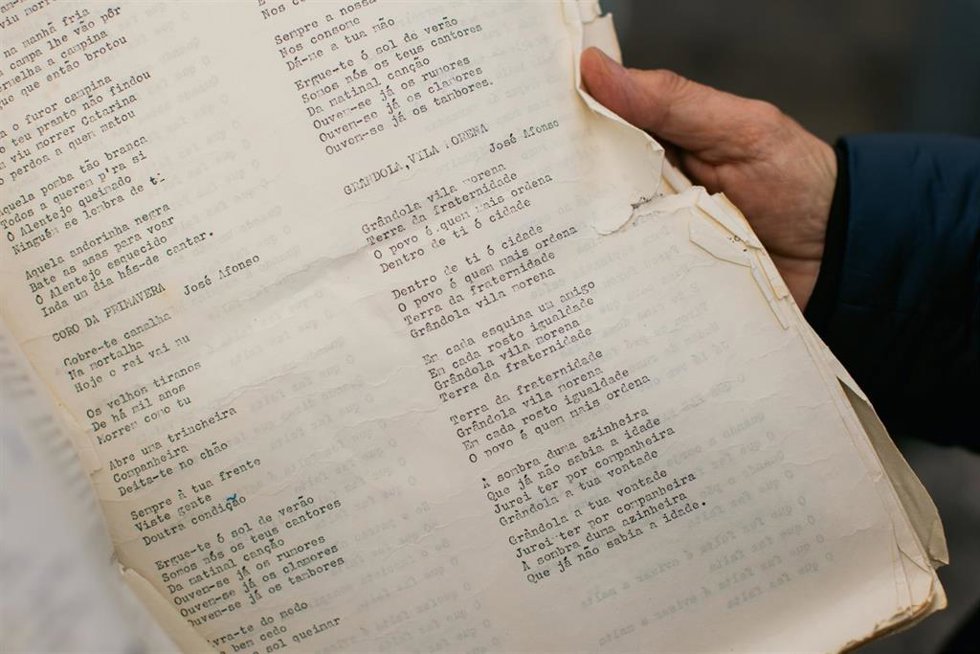 viu morrer
na manhã fria
campa lhe vão pôr
vermelha a campina
que então brotou
o furor campina
teu pranto não findou
viu morrer Catarina
perdoa a quem matou
Aquela pomba tão branca
Todos a querem p'ra si
Ó Alentejo queimado
Ninguém se lembra de ti
Aquela andorinha negra
Bate as asas para voar
Ó Alentejo esquecido
Inda um dia hás-de cantar.
CORO DA PRIMAVERA José Afonso
Cobre-te canalha
Na mortalha
Hoje o rei vai nu
Os velhos tiranos
De há mil anos
Morrem como tu
Abre uma trincheira
Companheira
Deita-te no chão
Sempre à tua frente
Viste gente
Doutra condição
Ergue-te ó sol de verão
Somos nós os teus cantores
Da matinal canção
Ouvem-se já os rumores
Ouvem-se já os clamores
Ouvem-se já os tambores
vra-te do medo
bem cedo
sol queimar
Nos
Sempre a nossa
Nos consome
Dá-me a tua mão
Ergue-te ó sol de verão
Somos nós os teus cantores
Da matinal canção
Ouvem-se já os rumores
Ouvem-se já os clamores
Ouvem-se já os tambores.
GRÂNDOLA,VILA MORENA José Afonso
Grândola vila morena
Terra da fraternidade
O povo é quem mais ordena
Dentro de ti ó cidade
Dentro de ti ó cidade
O povo é quem mais ordena
Terra da fraternidade
Grândola vila morena
Em cada esquina um amigo
Em cada rosto igualdade
Grândola vila morena
Terra da fraternidade
Terra da fraternidade
Grândola vila morena
Em cada rosto igualdade
O povo é quem mais ordena
À sombra duma azinheira
Que já não sabia a idade
Jurei ter por companheira
Grândola a tua vontade
Grândola a tua vontade
Jurei ter por companheira
A sombra duma azinheira
Que já não sabia a idade.